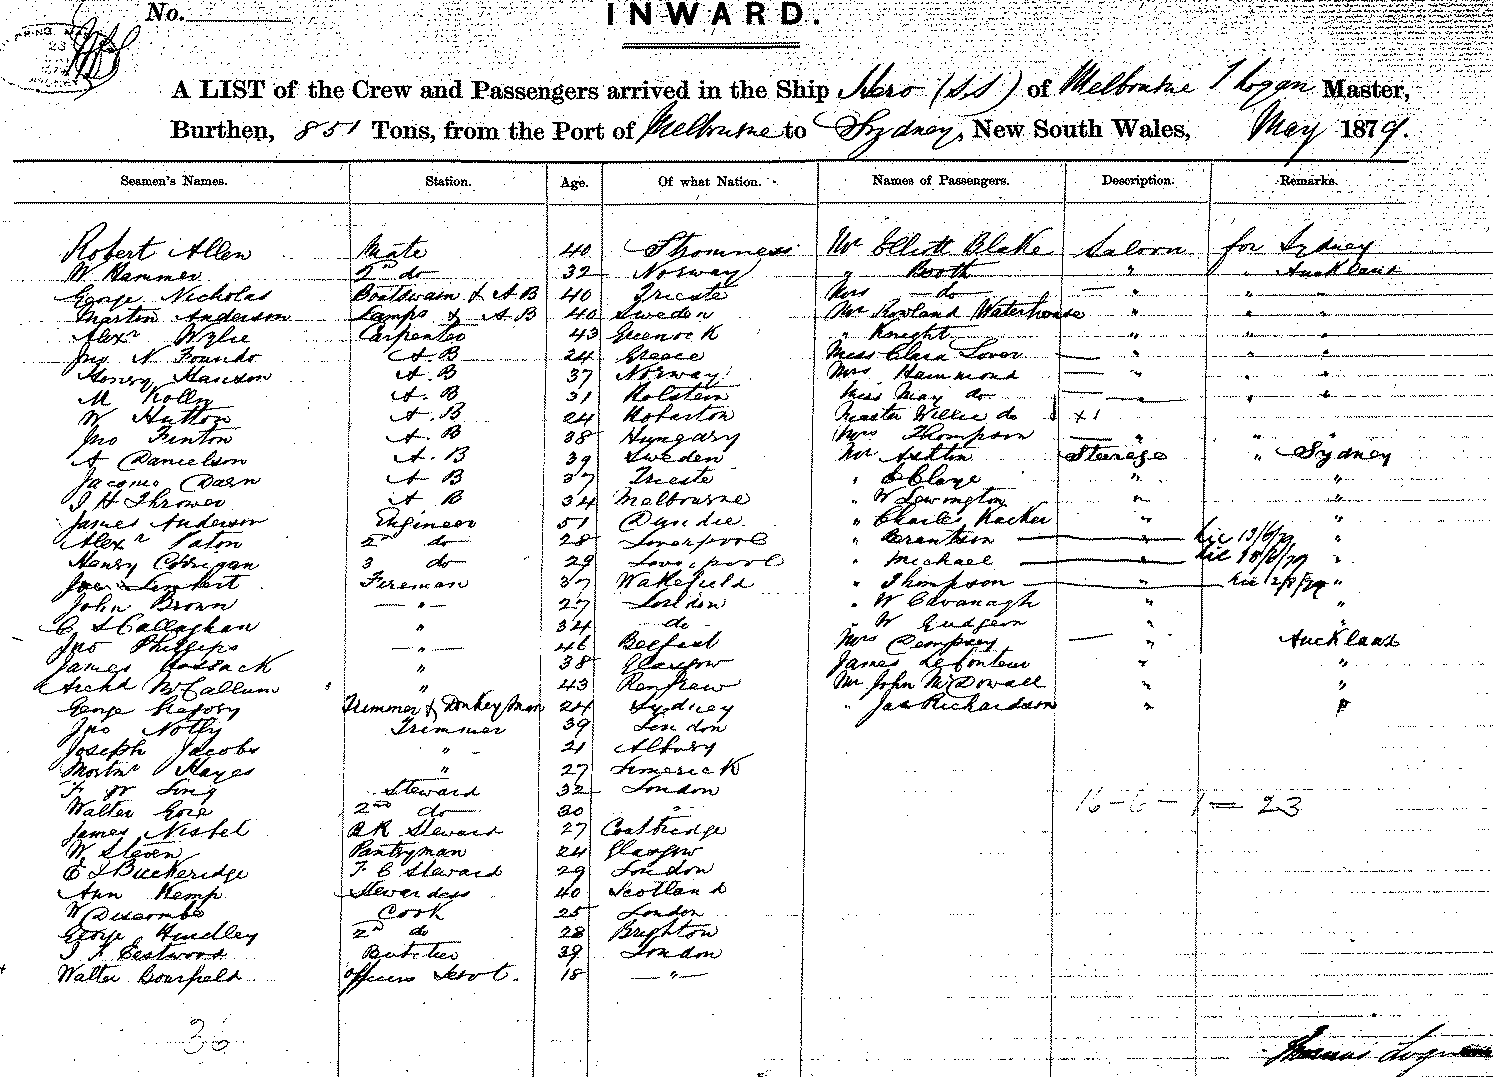 No.
INWARD.
A LIST of the Crew and Passengers arrived in the Ship Hero (SS) of Melbourne T Logan Master,
Burthen, 851 Tons, from the Port of Melbourne to Sydney, New South Wales, May 1879.
Seamen's Names. Station. Age. Of what Nation. Names of Passengers. Description. Remarks.
Robert Allen Mate 40 Stromness Mr Elliott Blake Saloon for Sydney
W Hammer 2nd do 32 Norway " Booth " " Auckland
George Nicholas Boatswain & A B 40 Trieste Mrs do — " " "
Martin Anderson Lamps & A B 40 Sweden Mr Rowland Waterhouse " " "
Alexr Wylie Carpenter 43 Greenock " Knight " " "
Jno N Foundo A B 24 Greece Miss Clara Lover — " " "
Henry Hanson A. B 37 Norway Mrs Hammond — " " "
M Kolln A. B 31 Holstein Miss May do — " " "
W Hutton A. B 24 Hobarton Master Willie do +1
Jno Finton A. B 38 Hungary Mrs Thompson — " " "
A Danielson A. B 39 Sweden Mr Austin Steerage " Sydney
Jacomo A B 37 Trieste " " "
J H Thrower A B 34 Melbourne " W Lewington " "
James Anderson Engineer 51 Dundee " Charles " "
Alexr Paton 2nd do 28 Liverpool " " 13/6/79 "
Henry Corrigan 3 do 29 Liverpool " Michael " "
Joe Fireman 37 Wakefield " Thompson " "
John Brown — " — 27 London " W Cavanagh " "
C S Callaghan " 34 do " W Gudgeon " "
Jno Phillips — " — 46 Belfast Mrs Dempsey — " Auckland
James Hossack " 38 Glasgow James Le Conteur " "
Archd McCallum " 43 Renfrew Mr John McDowall " "
George Gregory Trimmer & Donkeyman 24 Sydney " Jas Richardson " "
Jno Notly Trimmer 39 London
Joseph Jacobs " 21 Albury
Mortmr Hayes " 27 Limerick
F W Ling Steward 32 London
Walter Gore 2nd do 30 "
16 - 6 - 1 = 23
James Nisbet Steward 27 Coatbridge
W Steven Pantryman 24 Glasgow
E J Buckeridge F C Steward 29 London
Ann Kemp Stewardess 40 Scotland
W Discombe Cook 25 London
George Hindley 2nd do 28 Brighton
Eastwood Butcher 39 London
Walter Bourfield Officers Servt. 18 — " —
36
Thomas Logan